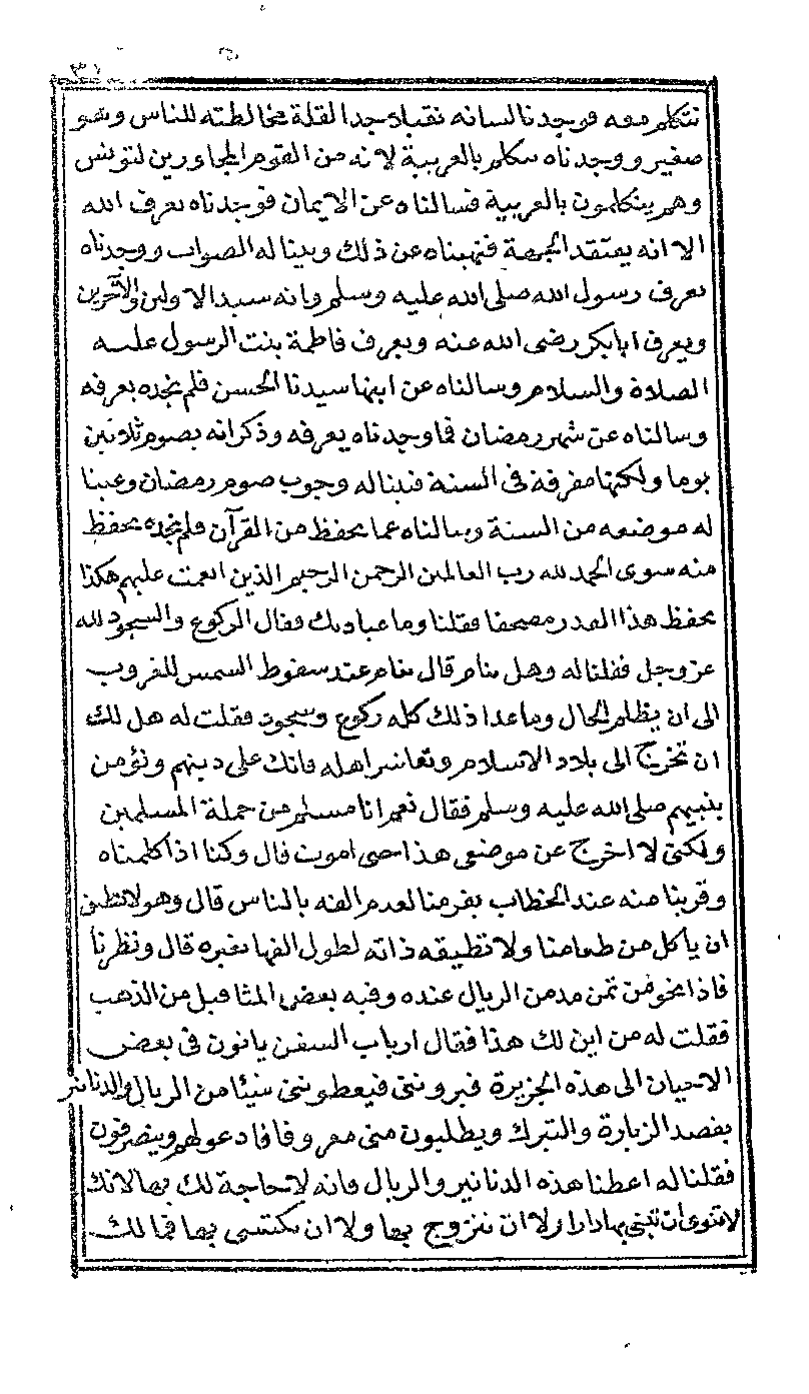 نتكلم معه فوجدنا لسانه ثقيلا جدا لقلة مخالطته للناس وهو
صغير ووجدناه يتكلم بالعربية لانه من القوم المجاورين لتونس
وهم يتكلمون بالعربية فسالناه عن الايمان فوجدناه يعرف الله
الا انه يعتقد الجهة فنهيناه عن ذلك وبينا له الصواب ووجدناه
يعرف رسول الله صلى الله عليه وسلم وانه سيد الاولين والآخرين
ويعرف ابابكر رضى الله عنه ويعرف فاطمة بنت الرسول عليه
الصلاة والسلام وسالناه عن ابنها سيدنا الحسن فلم نجده يعرفه
وسالناه عن شهر رمضان فما وجدناه يعرفه وذكر انه يصوم ثلاثين
يوما ولكنها مفرقة فى السنة فبينا له وجوب صوم رمضان وعينا
له موضعه من السنة وسالناه عما يحفظ من القرآن فلم نجده يحفظ
منه سوى الحمد لله رب العالمين الرحمن الرحيم الذين انعمت عليهم هكذا
يحفظ هذا القدر مصحفا فقلنا وما عبادتك فقال الركوع والسجود لله
عز وجل فقلنا له وهل تنام قال انام عند سقوط الشمس للغروب
الى ان يظلم الحال وما عدا ذلك كله ركوع وسجود فقلت له هل لك
ان تخرج الى بلاد الاسلام وتعاشر اهله فانك على دينهم ونؤمن
بنبيهم صلى الله عليه وسلم فقال نعم انا مسلم من جملة المسلمين
ولكنى لا اخرج عن موضعى هذا حتى اموت قال وكنا اذا كلمناه
وقربنا منه عند الخطاب يفر منا لعدم الفه بالناس قال وهو لا نطيق
ان ياكل من طعامنا ولا تطيقه ذاته لطول الفها بغيره قال ونظرنا
فاذا نحو من ثمن مد من الريال عنده وفيه بعض المثاقيل من الذهب
فقلت له من اين لك هذا فقال ارباب السفن ياتون فى بعض
الاحيان الى هذه الجزيرة فيروننى فيعطوننى شيئا من الريال والدنانير
بقصد الزيارة والتبرك ويطلبون منى معروفا فادعو لهم وينصرفون
فقلنا له اعطنا هذه الدنانير والريال فانه لا حاجة لك بها لانك
لا تنوى ان تبنى بها دارا ولا ان تتزوج بها ولا ان تكتسى بها فما لك